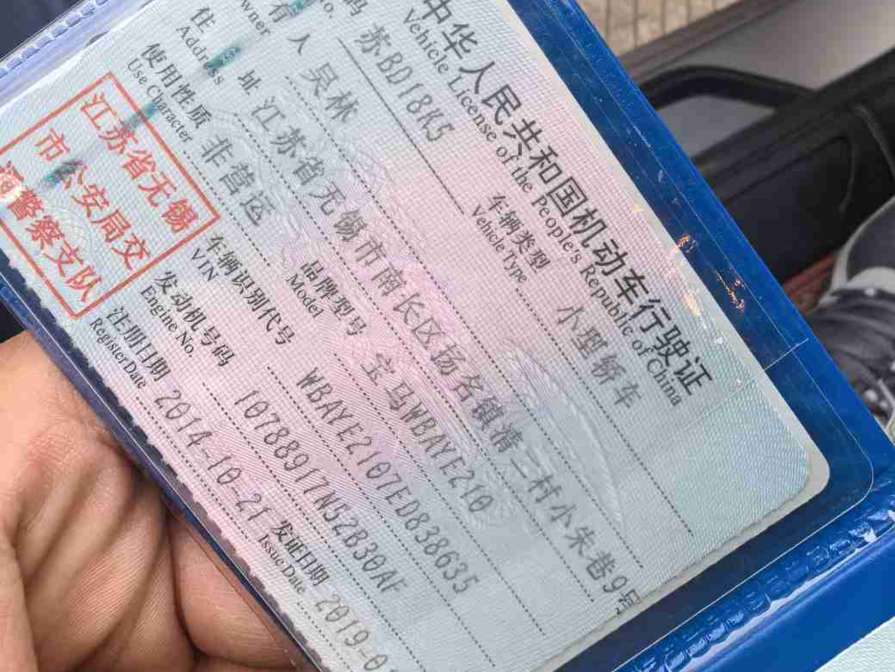 中华人民共和国机动车行驶证
Vehicle License of the People's Republic of China
苏BD18K5
车辆类型
Vehicle Type
小型轿车
人 吴林
住 址
Address
江苏省无锡市南长区扬名镇清二村小朱巷9号
使用性质
Use Character
非营运
品牌型号
Model
宝马WBAYE210
车辆识别代号
VIN
WBAYE2107ED838635
发动机号码
Engine No.
10788917N52B30AF
注册日期
Register Date
2014-10-21
发证日期
Issue Date
2019-0
江苏省无锡
市公安局交
警察支队